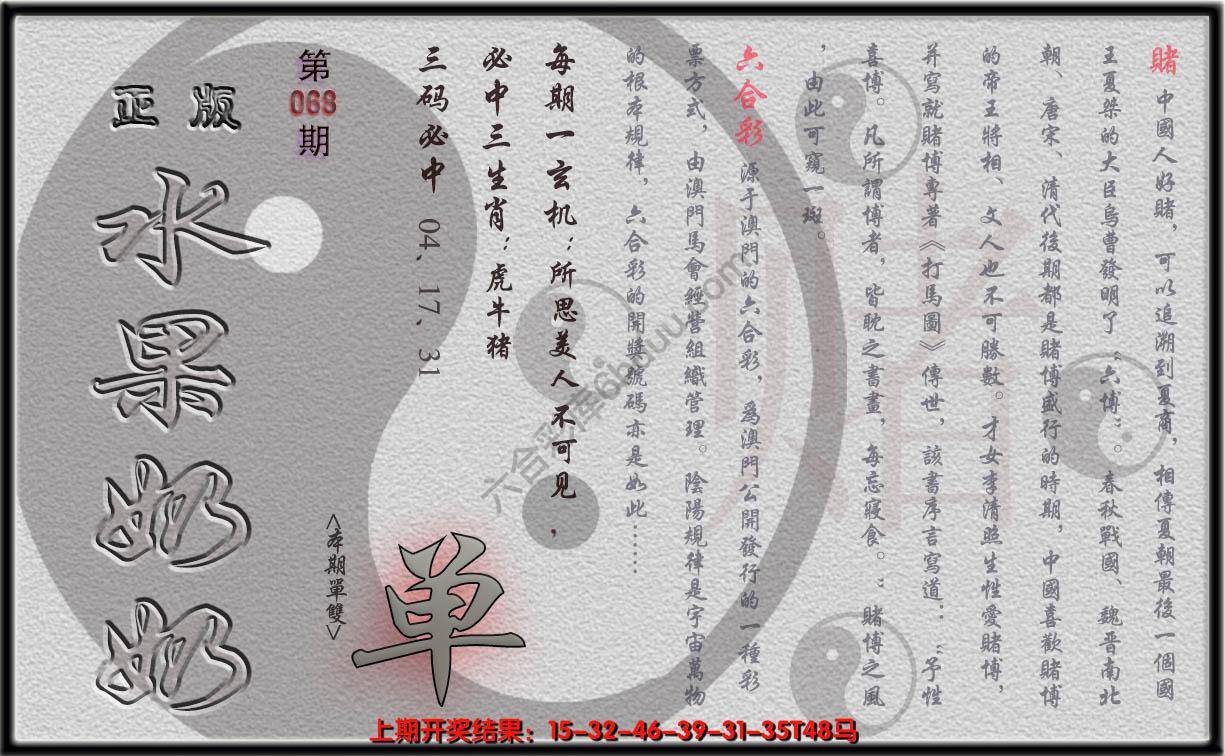 賭 中國人好賭，可以追溯到夏商，相傳夏朝最後一個國
王夏桀的大臣烏曹發明了“六博”。春秋戰國、魏晉南北
朝、唐宋、清代後期都是賭博盛行的時期，中國喜歡賭博
的帝王將相、文人也不可勝數。才女李清照生性愛賭博，
并寫就賭博專著《打馬圖》傳世，該書序言寫道：“予性
喜博。凡所謂博者，皆耽之書畫，每忘寢食。”賭博之風
，由此可窺一斑。
六合彩 源于澳門的六合彩，爲澳門公開發行的一種彩
票方式，由澳門馬會經營組織管理。陰陽規律是宇宙萬物
的根本規律，六合彩的開獎號碼亦是如此……
每期一玄机：所思美人不可見，
必中三生肖：虎牛猪
三码必中 04、17、31
第068期
正版
水果奶奶
<本期單雙>
单
賭
六合彩库6hduu.com
上期开奖结果：15-32-46-39-31-35T48马